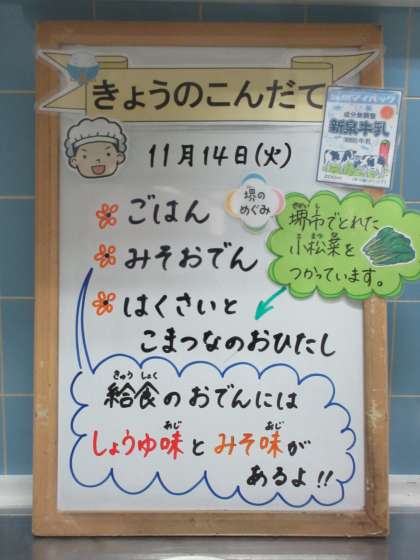 きょうのこんだて
11月14日(火)
成分無調整
新泉牛乳
ごはん
堺の
めぐみ
みそおでん
堺市でとれた
小松菜を
つかっています。
はくさいと
こまつなのおひたし
給食のおでんには
しょうゆ味とみそ味が
あるよ!!